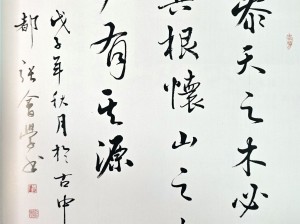 參天之木必
其根懷山之
有其源
戊子年秋月於古中
都 張會學书